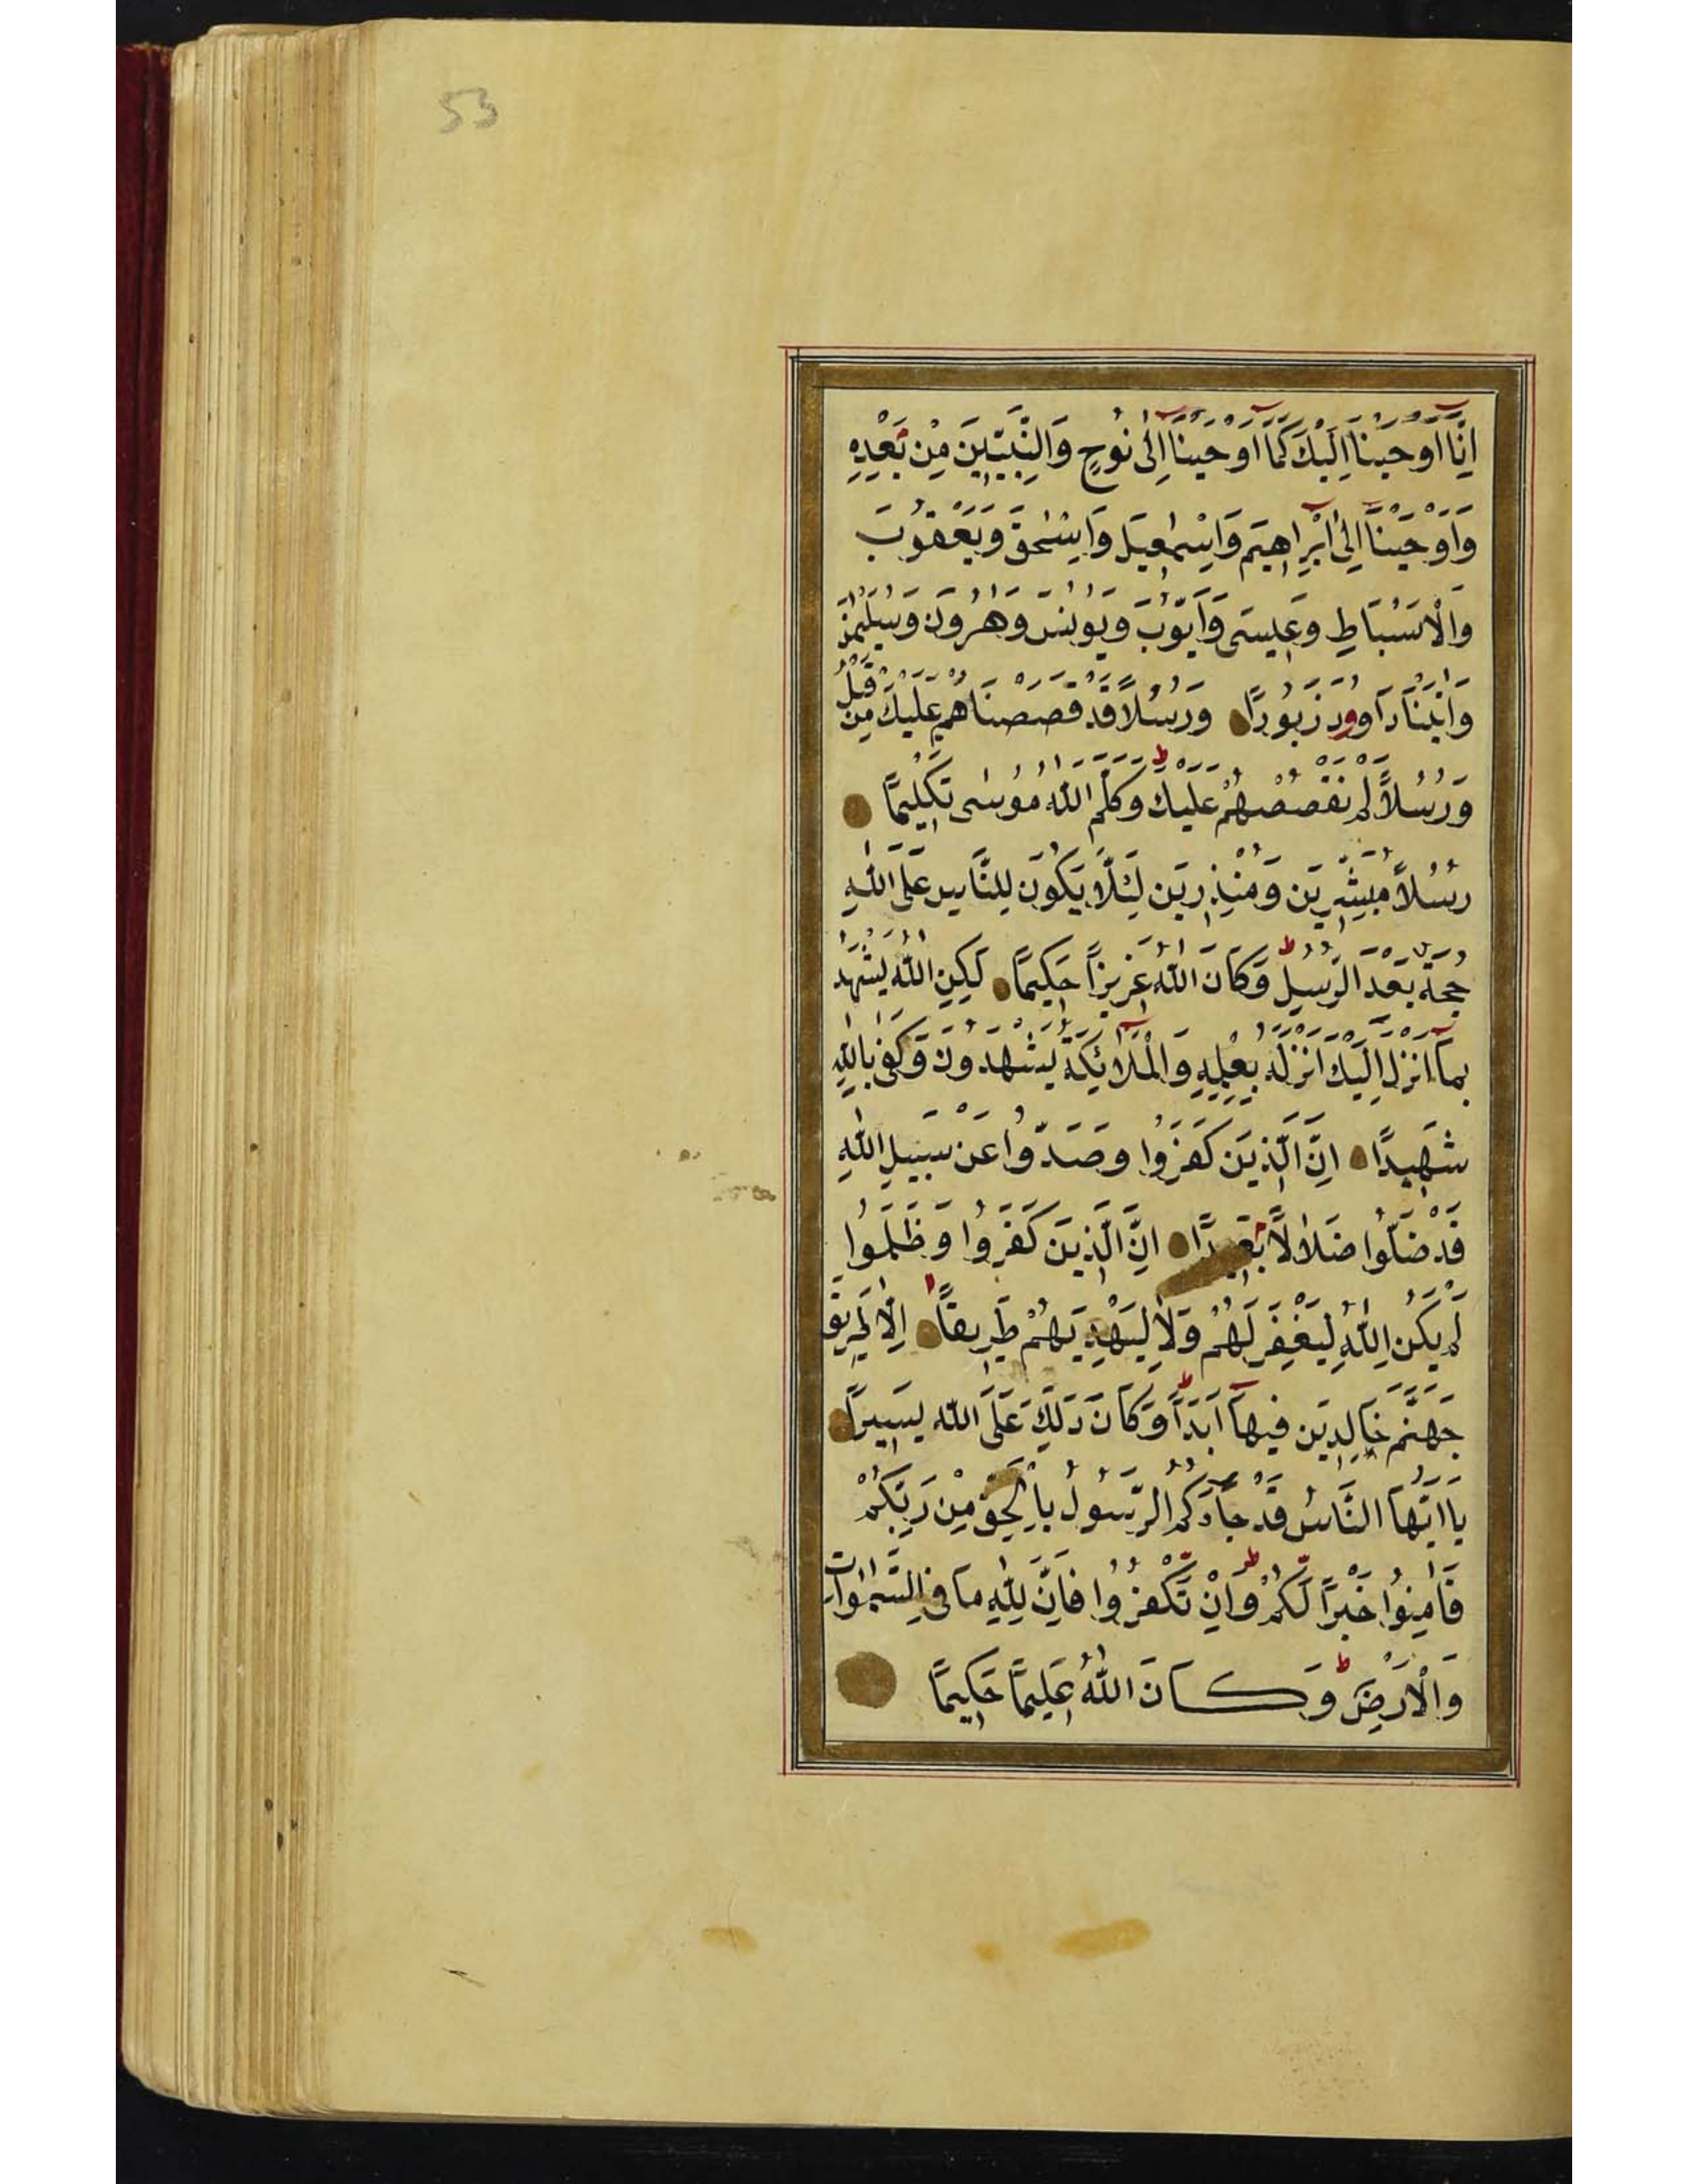 53
اِنَّٓا اَوْحَيْنَٓا اِلَيْكَ كَمَٓا اَوْحَيْنَٓا اِلٰى نُوحٍ وَالنَّبِيّٖينَ مِنْ بَعْدِهٖ
وَاَوْحَيْنَٓا اِلٰٓى اِبْرَاهٖيمَ وَاِسْمٰعٖيلَ وَاِسْحٰقَ وَيَعْقُوبَ
وَالْاَسْبَاطِ وَعٖيسٰى وَاَيُّوبَ وَيُونُسَ وَهٰرُونَ وَسُلَيْمٰنَ
وَاٰتَيْنَا دَاوُودَ زَبُورًا وَرُسُلًا قَدْ قَصَصْنَاهُمْ عَلَيْكَ مِنْ قَبْلُ
وَرُسُلًا لَمْ نَقْصُصْهُمْ عَلَيْكَ ط وَكَلَّمَ اللّٰهُ مُوسٰى تَكْلٖيمًا
رُسُلًا مُبَشِّرٖينَ وَمُنْذِرٖينَ لِئَلَّا يَكُونَ لِلنَّاسِ عَلَى اللّٰهِ
حُجَّةٌ بَعْدَ الرُّسُلِ ط وَكَانَ اللّٰهُ عَزٖيزًا حَكٖيمًا لٰكِنِ اللّٰهُ يَشْهَدُ
بِمَٓا اَنْزَلَ اِلَيْكَ اَنْزَلَهُ بِعِلْمِهٖ وَالْمَلَٓائِكَةُ يَشْهَدُونَ وَكَفٰى بِاللّٰهِ
شَهٖيدًا اِنَّ الَّذٖينَ كَفَرُوا وَصَدُّوا عَنْ سَبٖيلِ اللّٰهِ
قَدْ ضَلُّوا ضَلَالًا بَعٖيدًا اِنَّ الَّذٖينَ كَفَرُوا وَظَلَمُوا
لَمْ يَكُنِ اللّٰهُ لِيَغْفِرَ لَهُمْ وَلَا لِيَهْدِيَهُمْ طَرٖيقًا اِلَّا طَرٖيقَ
جَهَنَّمَ خَالِدٖينَ فٖيهَٓا اَبَدًا ط وَكَانَ ذٰلِكَ عَلَى اللّٰهِ يَسٖيرًا
يَا اَيُّهَا النَّاسُ قَدْ جَٓاءَكُمُ الرَّسُولُ بِالْحَقِّ مِنْ رَبِّكُمْ
فَاٰمِنُوا خَيْرًا لَكُمْ ط وَاِنْ تَكْفُرُوا فَاِنَّ لِلّٰهِ مَا فِى السَّمٰوَاتِ
وَالْاَرْضِ ط وَكَانَ اللّٰهُ عَلٖيمًا حَكٖيمًا